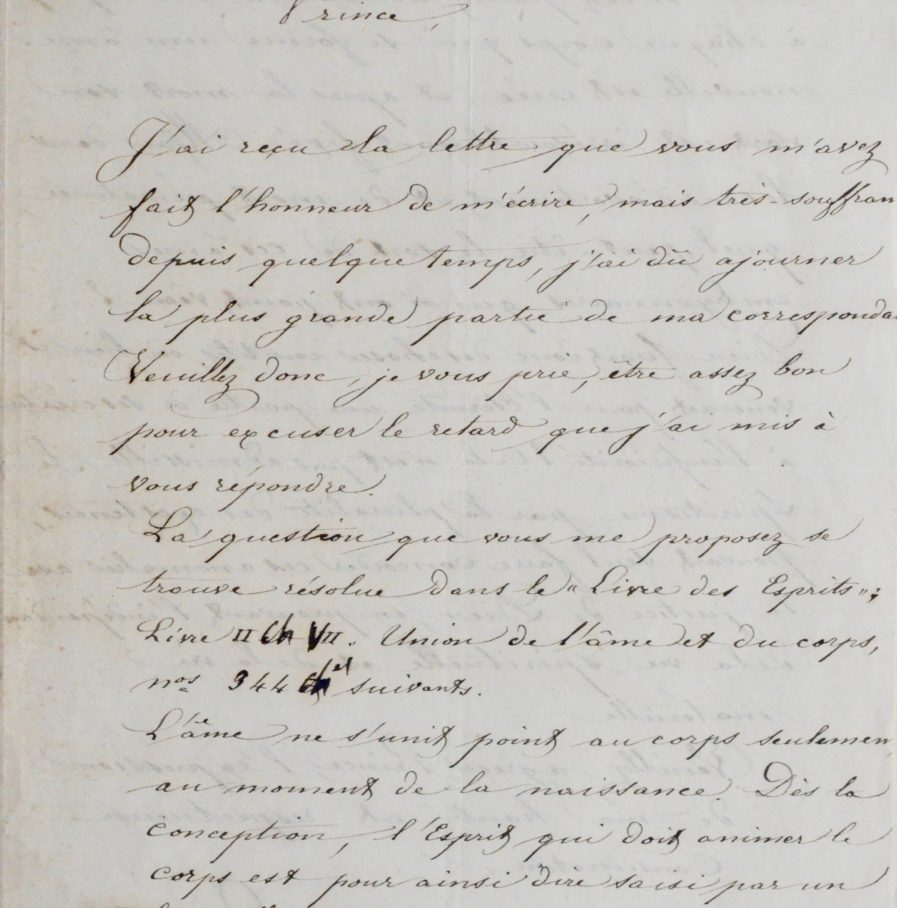 Prince,
J'ai reçu la lettre que vous m'avez
fait l'honneur de m'écrire, mais très-souffran
depuis quelque temps, j'ai dû ajourner
la plus grande partie de ma corresponda
Veuillez donc, je vous prie, être assez bon
pour excuser le retard que j'ai mis à
vous répondre.
La question que vous me proposez se
trouve résolue dans le "Livre des Esprits";
Livre II Ch VII. Union de l'âme et du corps,
nos 344 et suivants.
L'âme ne s'unit point au corps seulemen
au moment de la naissance. Dès la
conception, l'Esprit qui doit animer le
corps est pour ainsi dire saisi par un